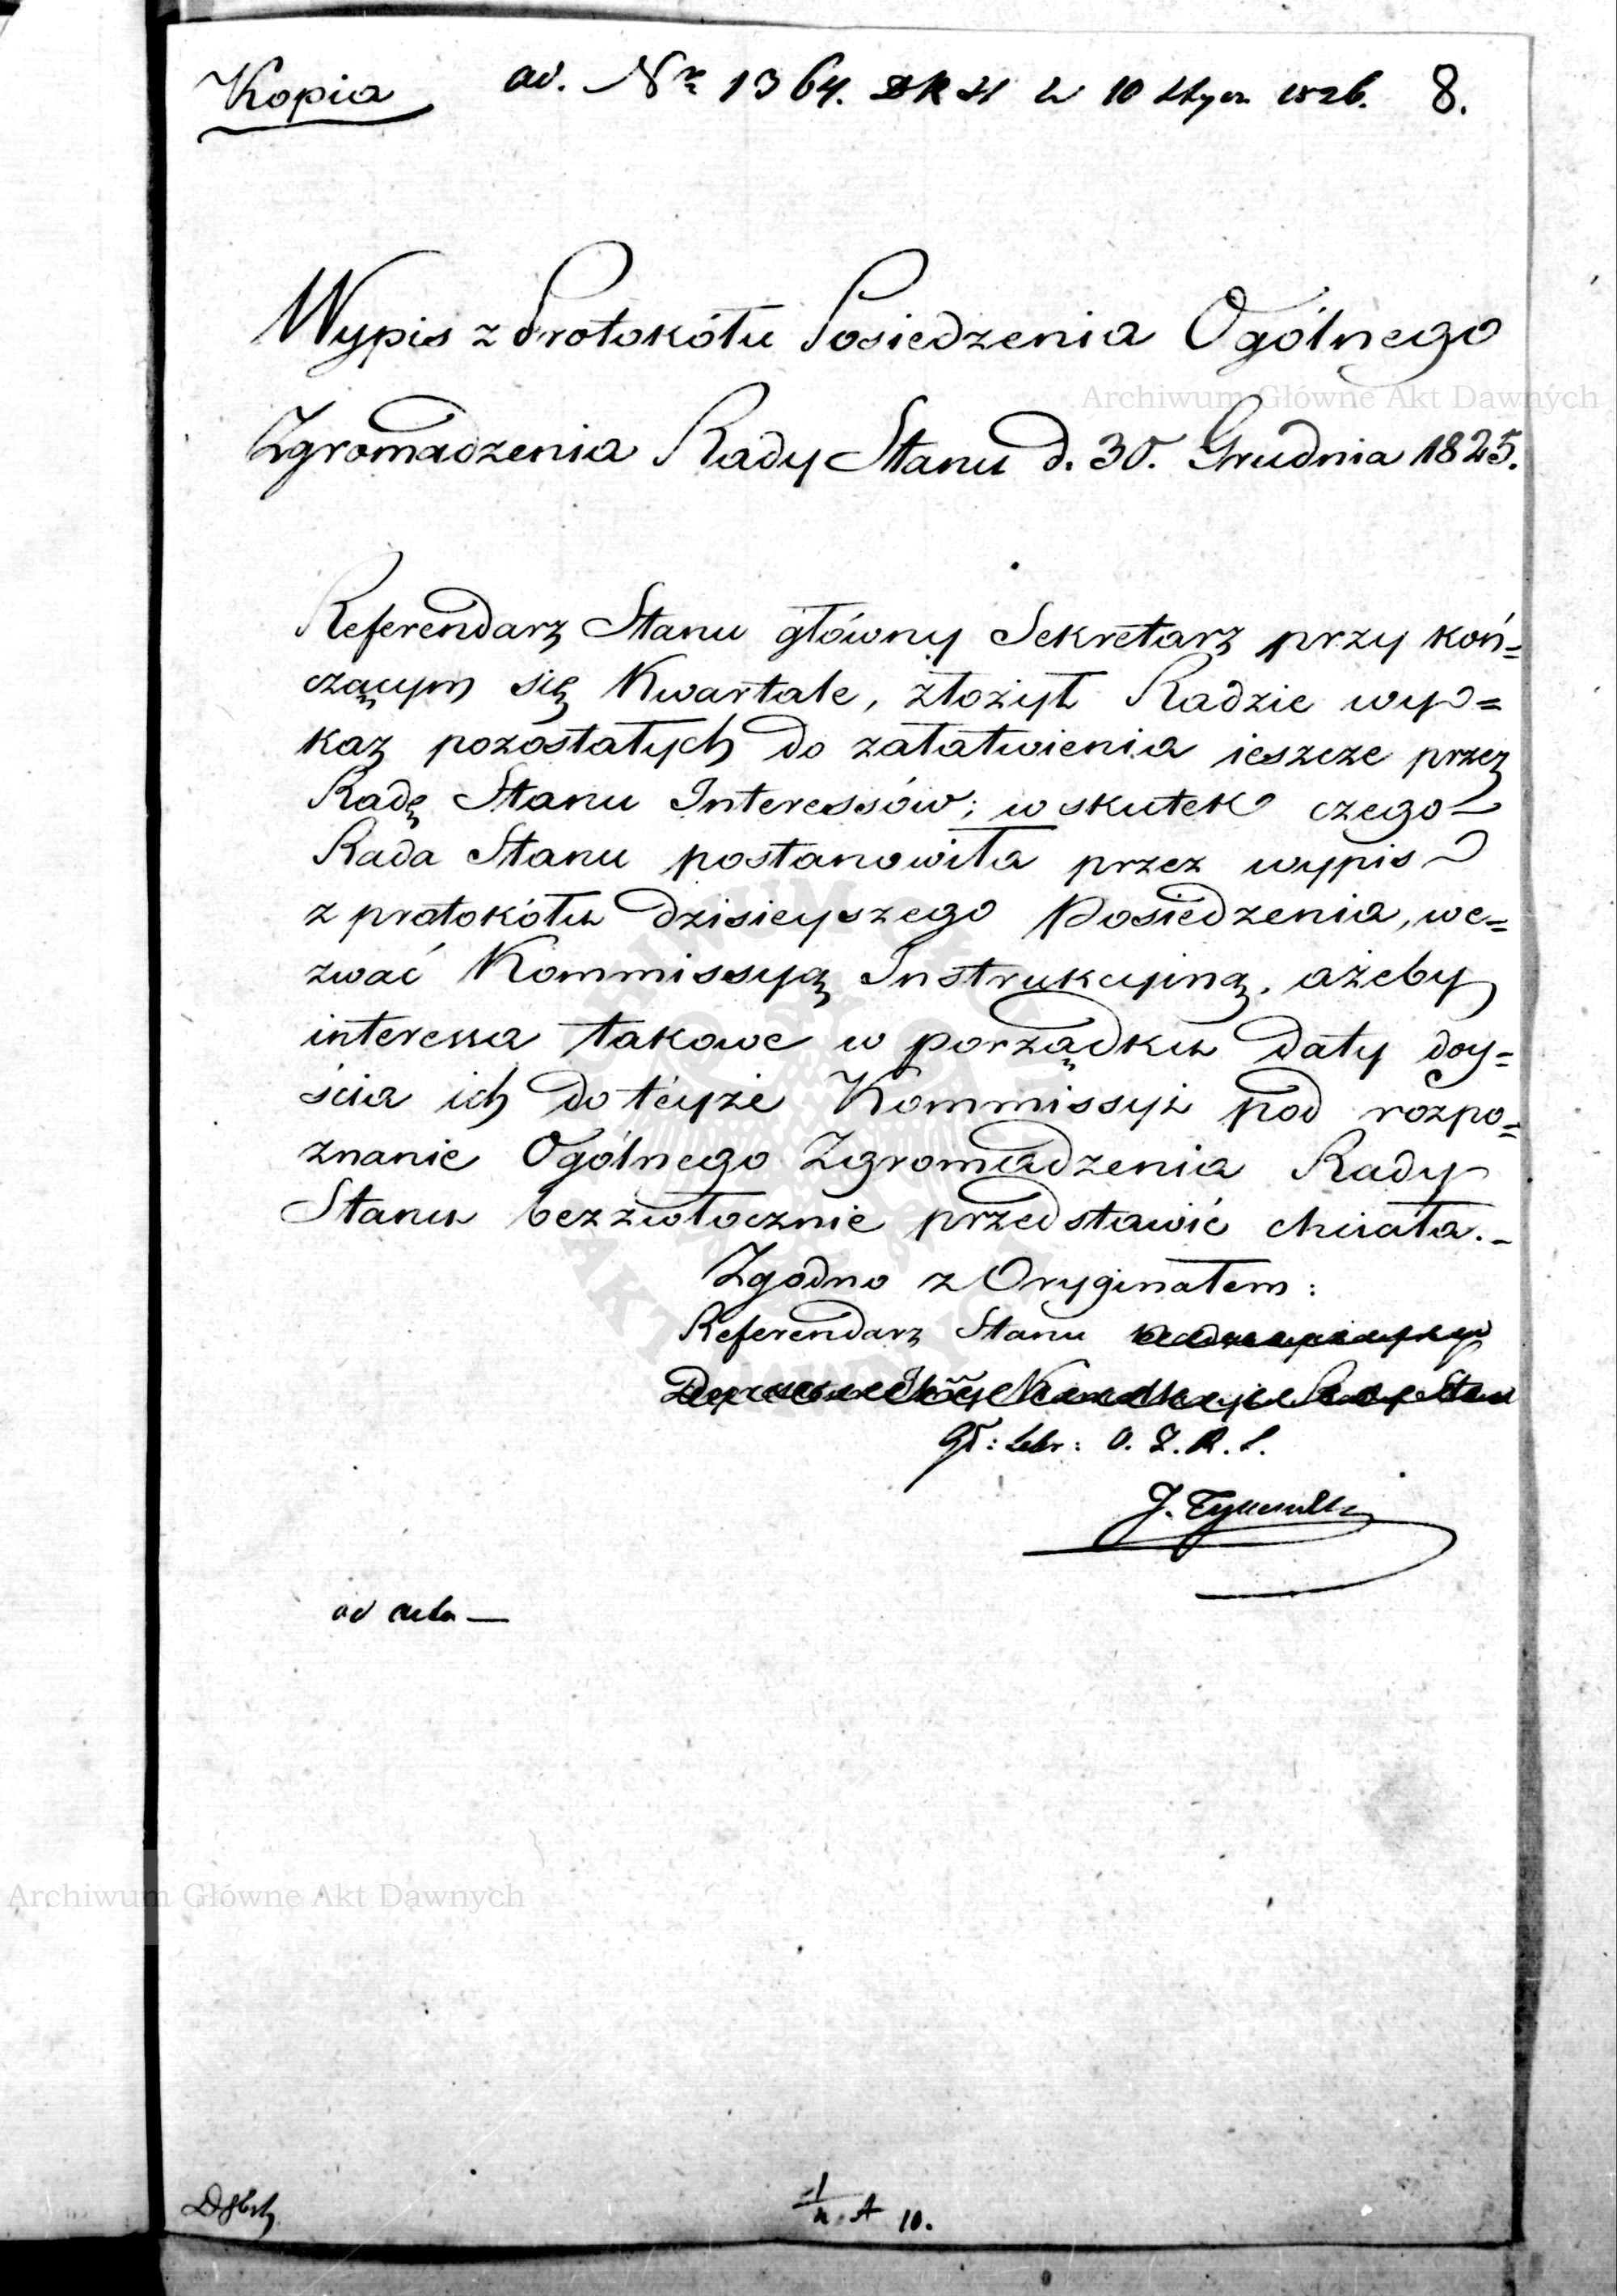 Kopia ad. Nr 1364. DKST 10 Stycz 1826. 8.
Wypis z Protokółu Posiedzenia Ogólnego
Archiwum Główne Akt Dawnych
Zgromadzenia Rady Stanu d. 30. Grudnia 1825.
Referendarz Stanu główny Sekretarz przy koń=
czącym się Kwartale, złożył Radzie wy=
kaz pozostałych do załatwienia ieszcze przez
Radę Stanu Interessów; w skutek czego
Rada Stanu postanowiła przez wypis
z protokółu dzisieyszego Posiedzenia, we=
zwać Kommissyą Instrukcyiną, ażeby
interessa takowe w porządku daty doy=
ścia ich do téyże Kommissyi pod rozpo=
znanie Ogólnego Zgromadzenia Rady
Stanu bezzwłocznie przedstawić chciała.-
Zgodno z Oryginałem:
Referendarz Stanu
Gł: Sekr: O. Z. R. S.
J. Tymowski
ad acta —
Archiwum Główne Akt Dawnych
10.